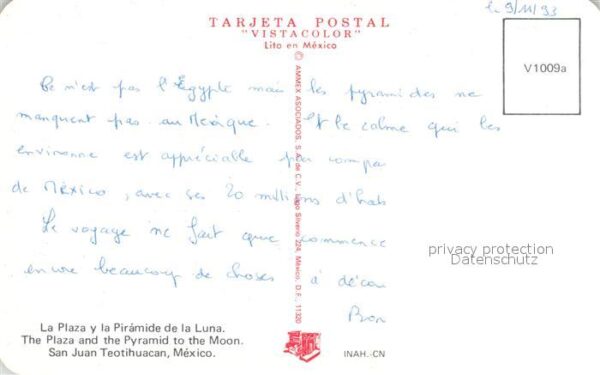 TARJETA POSTAL
"VISTACOLOR"
Lito en México
le 9/11/93
V1009a
© AMMEX ASOCIADOS, S.A. de C.V., Lago Silverio 224, México, D.F., 11320
Ce n'est pas l'Égypte mais les pyramides ne
manquent pas au Mexique. Et le calme qui les
environne est appréciable par compa
de México, avec ses 20 millions d'habi
Le voyage ne fait que commence
encore beaucoup de choses à décou
Bon
privacy protection
Datenschutz
La Plaza y la Pirámide de la Luna.
The Plaza and the Pyramid to the Moon.
San Juan Teotihuacan, México.
INAH.-CN